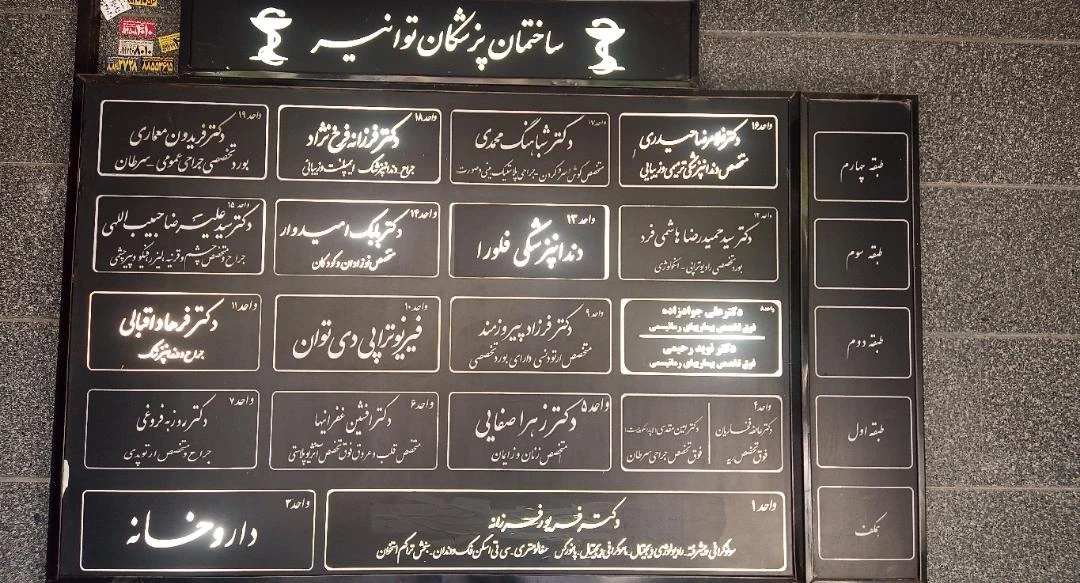 ساختمان پزشکان توانیر
طبقه چهارم
واحد ۱۶
دکتر غلامرضا حیدری
متخصص دندانپزشکی ترمیمی و زیبایی
واحد ۱۷
دکتر شباهنگ محمدی
متخصص گوش و سر و گردن - جراحی پلاستیک بینی و صورت
واحد ۱۸
دکتر فرزانه فرخ نژاد
جراح دندانپزشک ایمپلنت و زیبایی
واحد ۱۹
دکتر فریدون معماری
بورد تخصصی جراحی عمومی - سرطان
طبقه سوم
واحد ۱۲
دکتر سید حمیدرضا هاشمی فرد
بورد تخصصی رادیوتراپی - انکولوژی
واحد ۱۳
دندانپزشکی فلورا
واحد ۱۴
دکتر بابک امیدوار
متخصص نوزادان و کودکان
واحد ۱۵
دکتر سید علیرضا حبیب اللهی
جراح و متخصص چشم و قرنیه، لیزر رفرکتیو و پیرچشمی
طبقه دوم
واحد ۸
دکتر علی جوادزاده
فوق تخصص بیماریهای روماتیسمی
دکتر نوید رحیمی
فوق تخصص بیماریهای روماتیسمی
واحد ۹
دکتر فرزاد پیروزمند
متخصص ارتودنسی دارای بورد تخصصی
واحد ۱۰
فیزیوتراپی دی توان
واحد ۱۱
دکتر فرهاد اقبالی
جراح دندانپزشک
طبقه اول
واحد ۴
فوق تخصص ریه
فوق تخصص جراحی سرطان
واحد ۵
دکتر زهرا صفایی
متخصص زنان و زایمان
واحد ۶
دکتر افشین غفرانیها
متخصص قلب و عروق فوق تخصص آنژیوپلاستی
واحد ۷
دکتر روزبه فروغی
جراح و متخصص ارتوپدی
همکف
واحد ۱
دکتر فریور فرزانه
سونوگرافی پیشرفته، رادیولوژی دیجیتال، ماموگرافی دیجیتال، پانورکس سفالومتری، سی تی اسکن فک و دندان، سنجش تراکم استخوان
واحد ۲
داروخانه